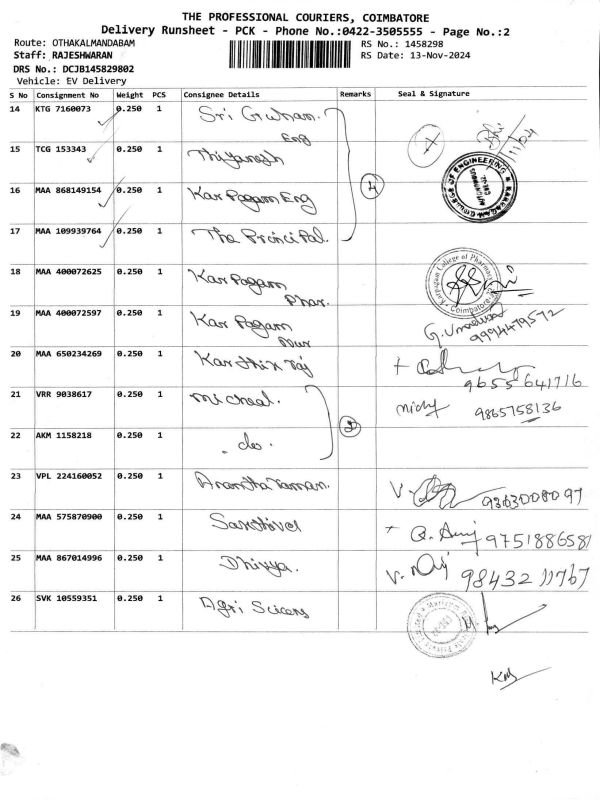 THE PROFESSIONAL COURIERS, COIMBATORE
Delivery Runsheet - PCK - Phone No.:0422-3505555 - Page No.:2
Route: OTHAKALMANDABAM
RS No.: 1458298
Staff: RAJESHWARAN
RS Date: 13-Nov-2024
DRS No.: DCJB145829802
Vehicle: EV Delivery
S No Consignment No Weight PCS Consignee Details Remarks Seal & Signature
14 KTG 7160073 0.250 1 Sri Guham Eng
15 TCG 153343 0.250 1
16 MAA 868149154 0.250 1 Karpagam Eng 4
17 MAA 109939764 0.250 1 The Principal.
18 MAA 400072625 0.250 1 Karpagam Phar.
19 MAA 400072597 0.250 1 Karpagam Nur 9994479572
20 MAA 650234269 0.250 1 Karthik raj 9655641716
21 VRR 9038617 0.250 1 Micheal. 9865758136
22 AKM 1158218 0.250 1 do. 2
23 VPL 224160052 0.250 1 9363008097
24 MAA 575870900 0.250 1 Santhivel 9751886581
25 MAA 867014996 0.250 1 Dhivya. 98432 11767
26 SVK 10559351 0.250 1 Agri